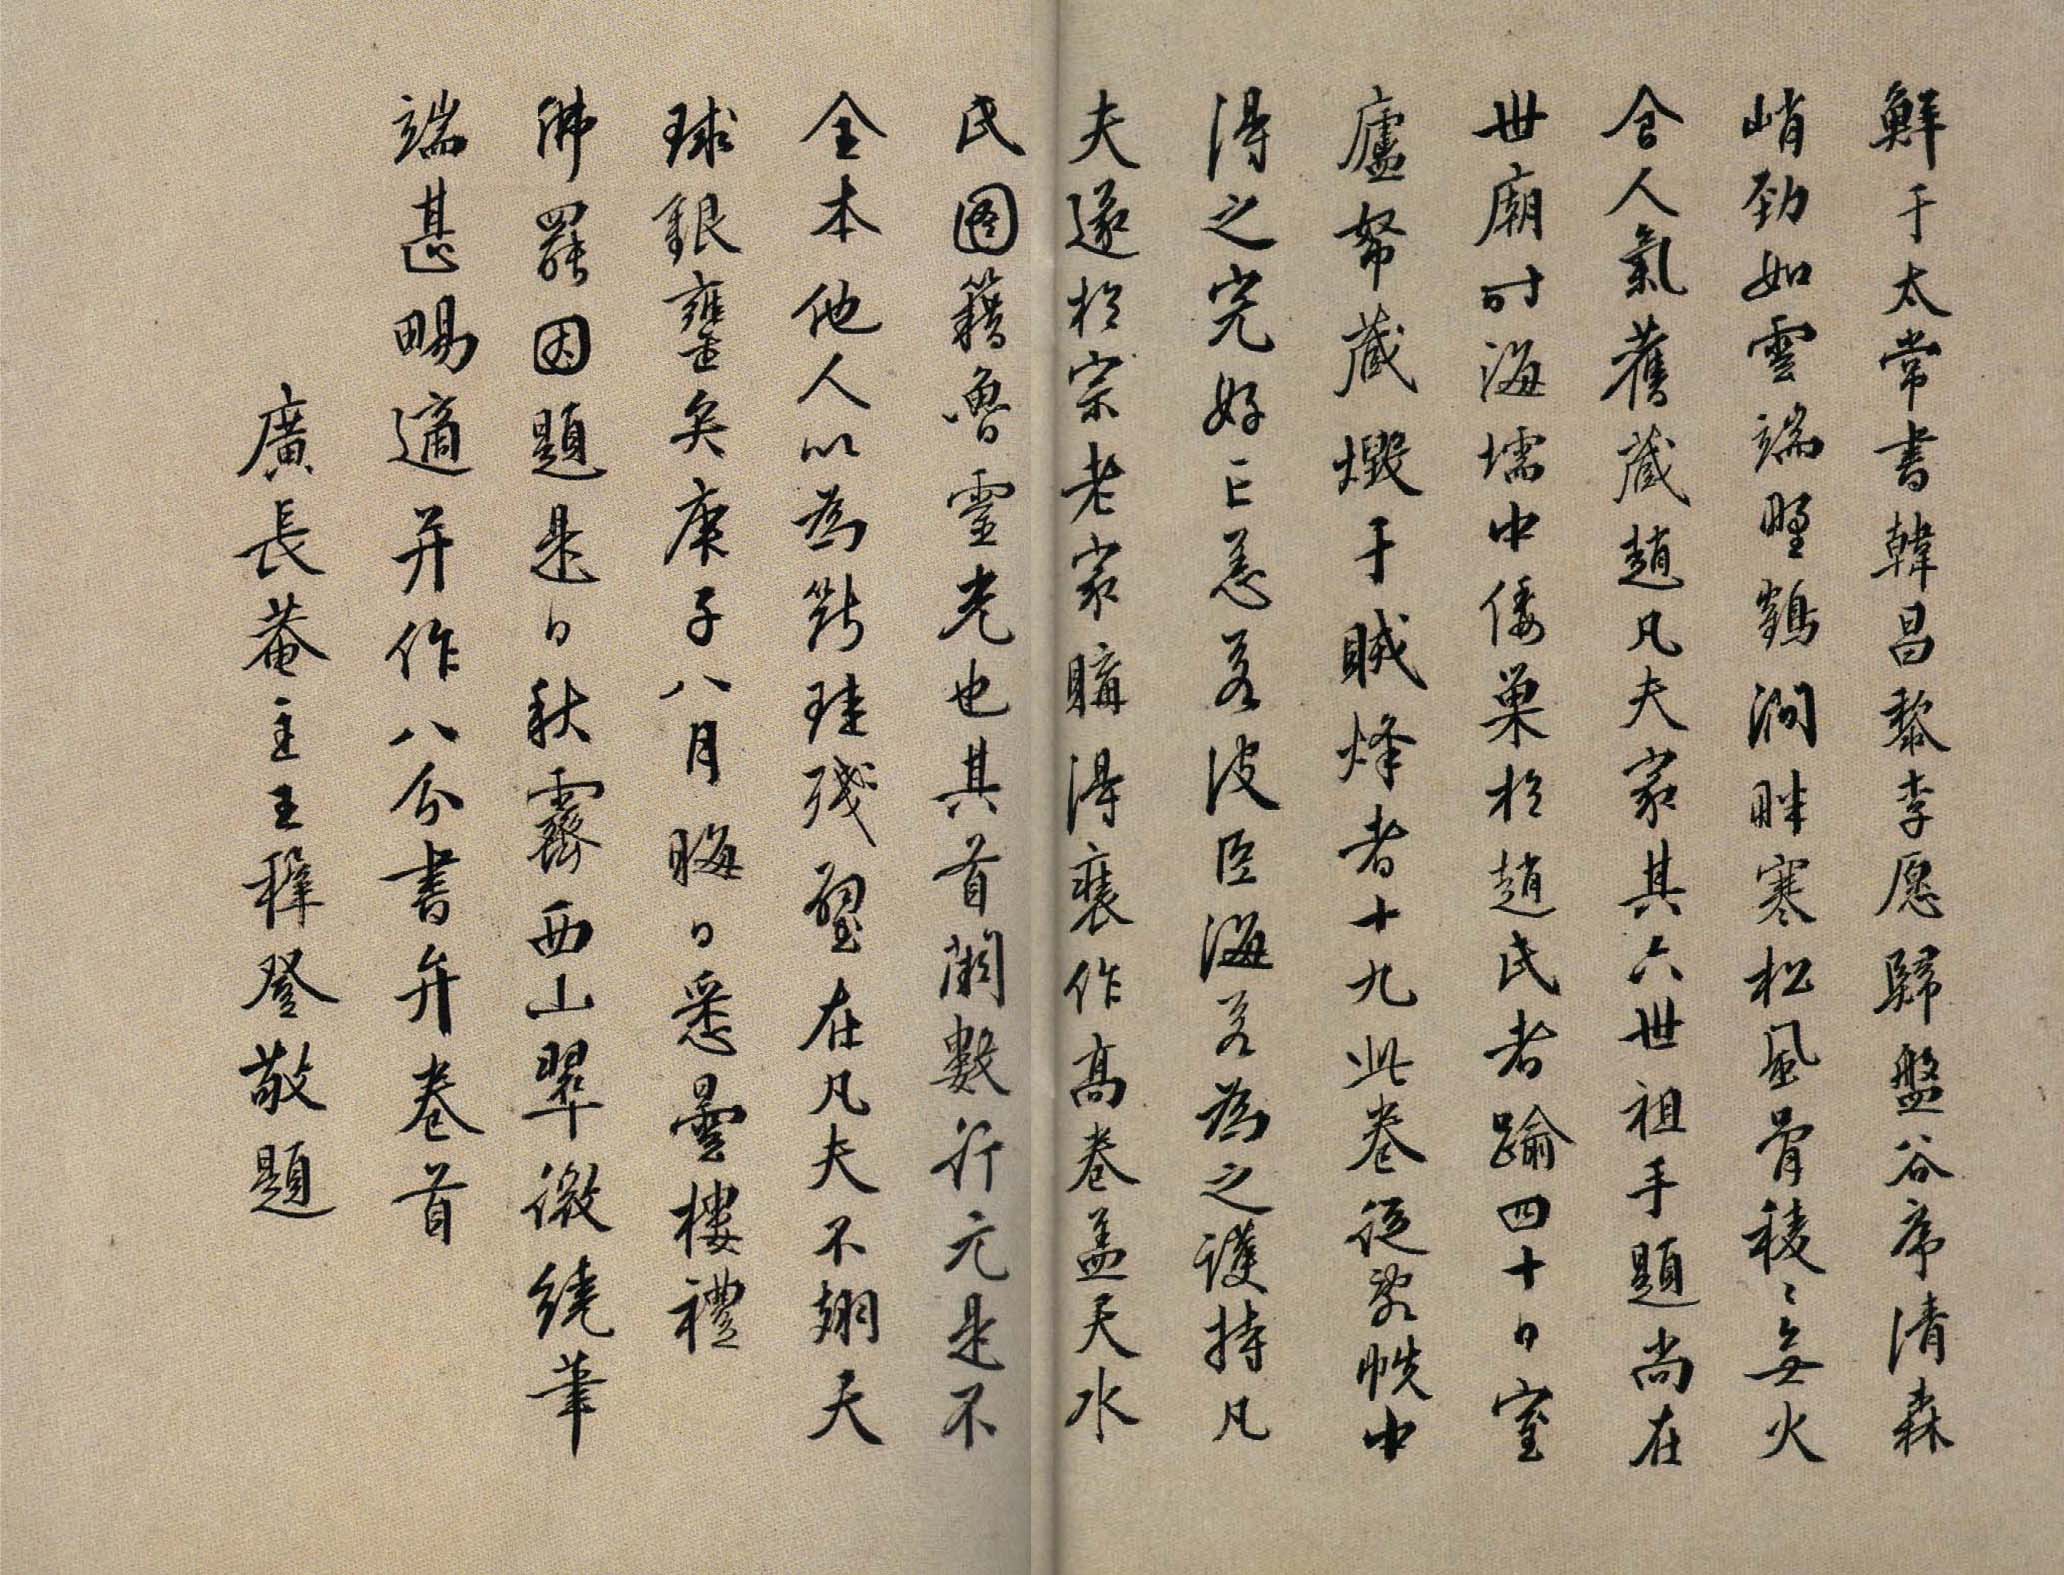 鮮于太常書韓昌黎李愿歸盤谷序清森
峭勁如雲端野鶴澗畔寒松風骨稜〻無火
食人氣舊藏趙凡夫家其六世祖手題尚在
世廟时海壖中倭巢於趙氏者踰四十日室
廬帑藏燬于賊烽者十九此卷從帟幙中
得之完好亡恙若波臣海若為之護持凡
夫遂於宗老家購得裝作髙卷盖天水
氏圖籍魯靈光也其首闕數行元是不
全本他人以為斷珪殘璧在凡夫不翅天
球銀甕矣庚子八月晦日悉曇樓禮
佛罷因題是日秋霽西山翠微繞筆
端甚暢適并作八分書弁卷首
廣長菴主王穉登敬題